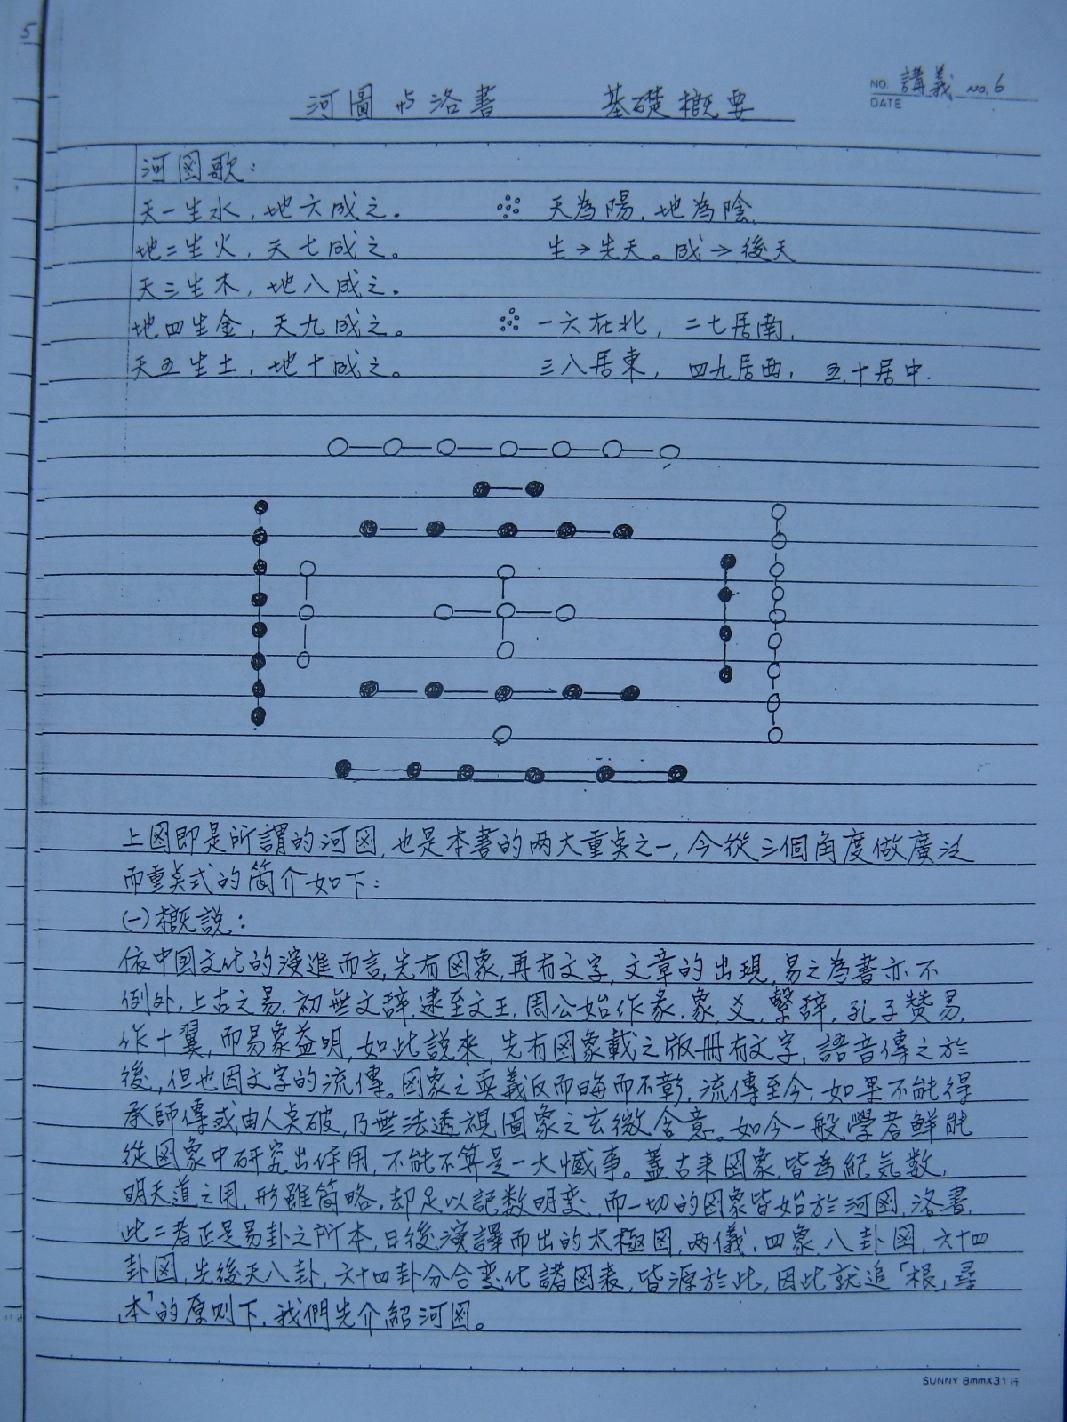 5
NO. 講義 NO.6
DATE
河圖與洛書 基礎概要
河図歌：
天一生水，地六成之。 天為陽，地為陰。
地二生火，天七成之。 生→先天。成→後天
天三生木，地八成之。
地四生金，天九成之。 一六在北，二七居南，
天五生土，地十成之。 三八居東，四九居西，五十居中．
上図即是所謂的河図，也是本書的两大重点之一，今從三個角度做廣泛
而重点式的簡介如下：
㈠概説：
依中国文化的演進而言，先有図象，再有文字，文章的出現，易之為書亦不
例外，上古之易，初無文辞，逮至文王，周公始作彖，象，爻，繫辞，孔子赞易，
作十翼，而易象益明，如此說來，先有図象載之版冊有文字，語音傳之於
後，但也因文字的流傳。図象之奥義反而晦而不彰，流傳至今，如果不能得
承師傳或由人点破，乃無法透視圖象之玄微含意。如今一般學者鮮能
從図象中研究出作用，不能不算是一大憾事。蓋古來図象，皆為紀気数，
明天道之用，形雖簡略，却足以記数明变，而一切的図象皆始於河図，洛書，
此二者正是易卦之所本，日後演譯而出的太極図，两儀，四象，八卦図，六十四
卦図，先後天八卦，六十四卦分合变化諸図表，皆源於此，因此就追「根」尋
本」的原则下，我們先介紹河図。
SUNNY 8mmX31行